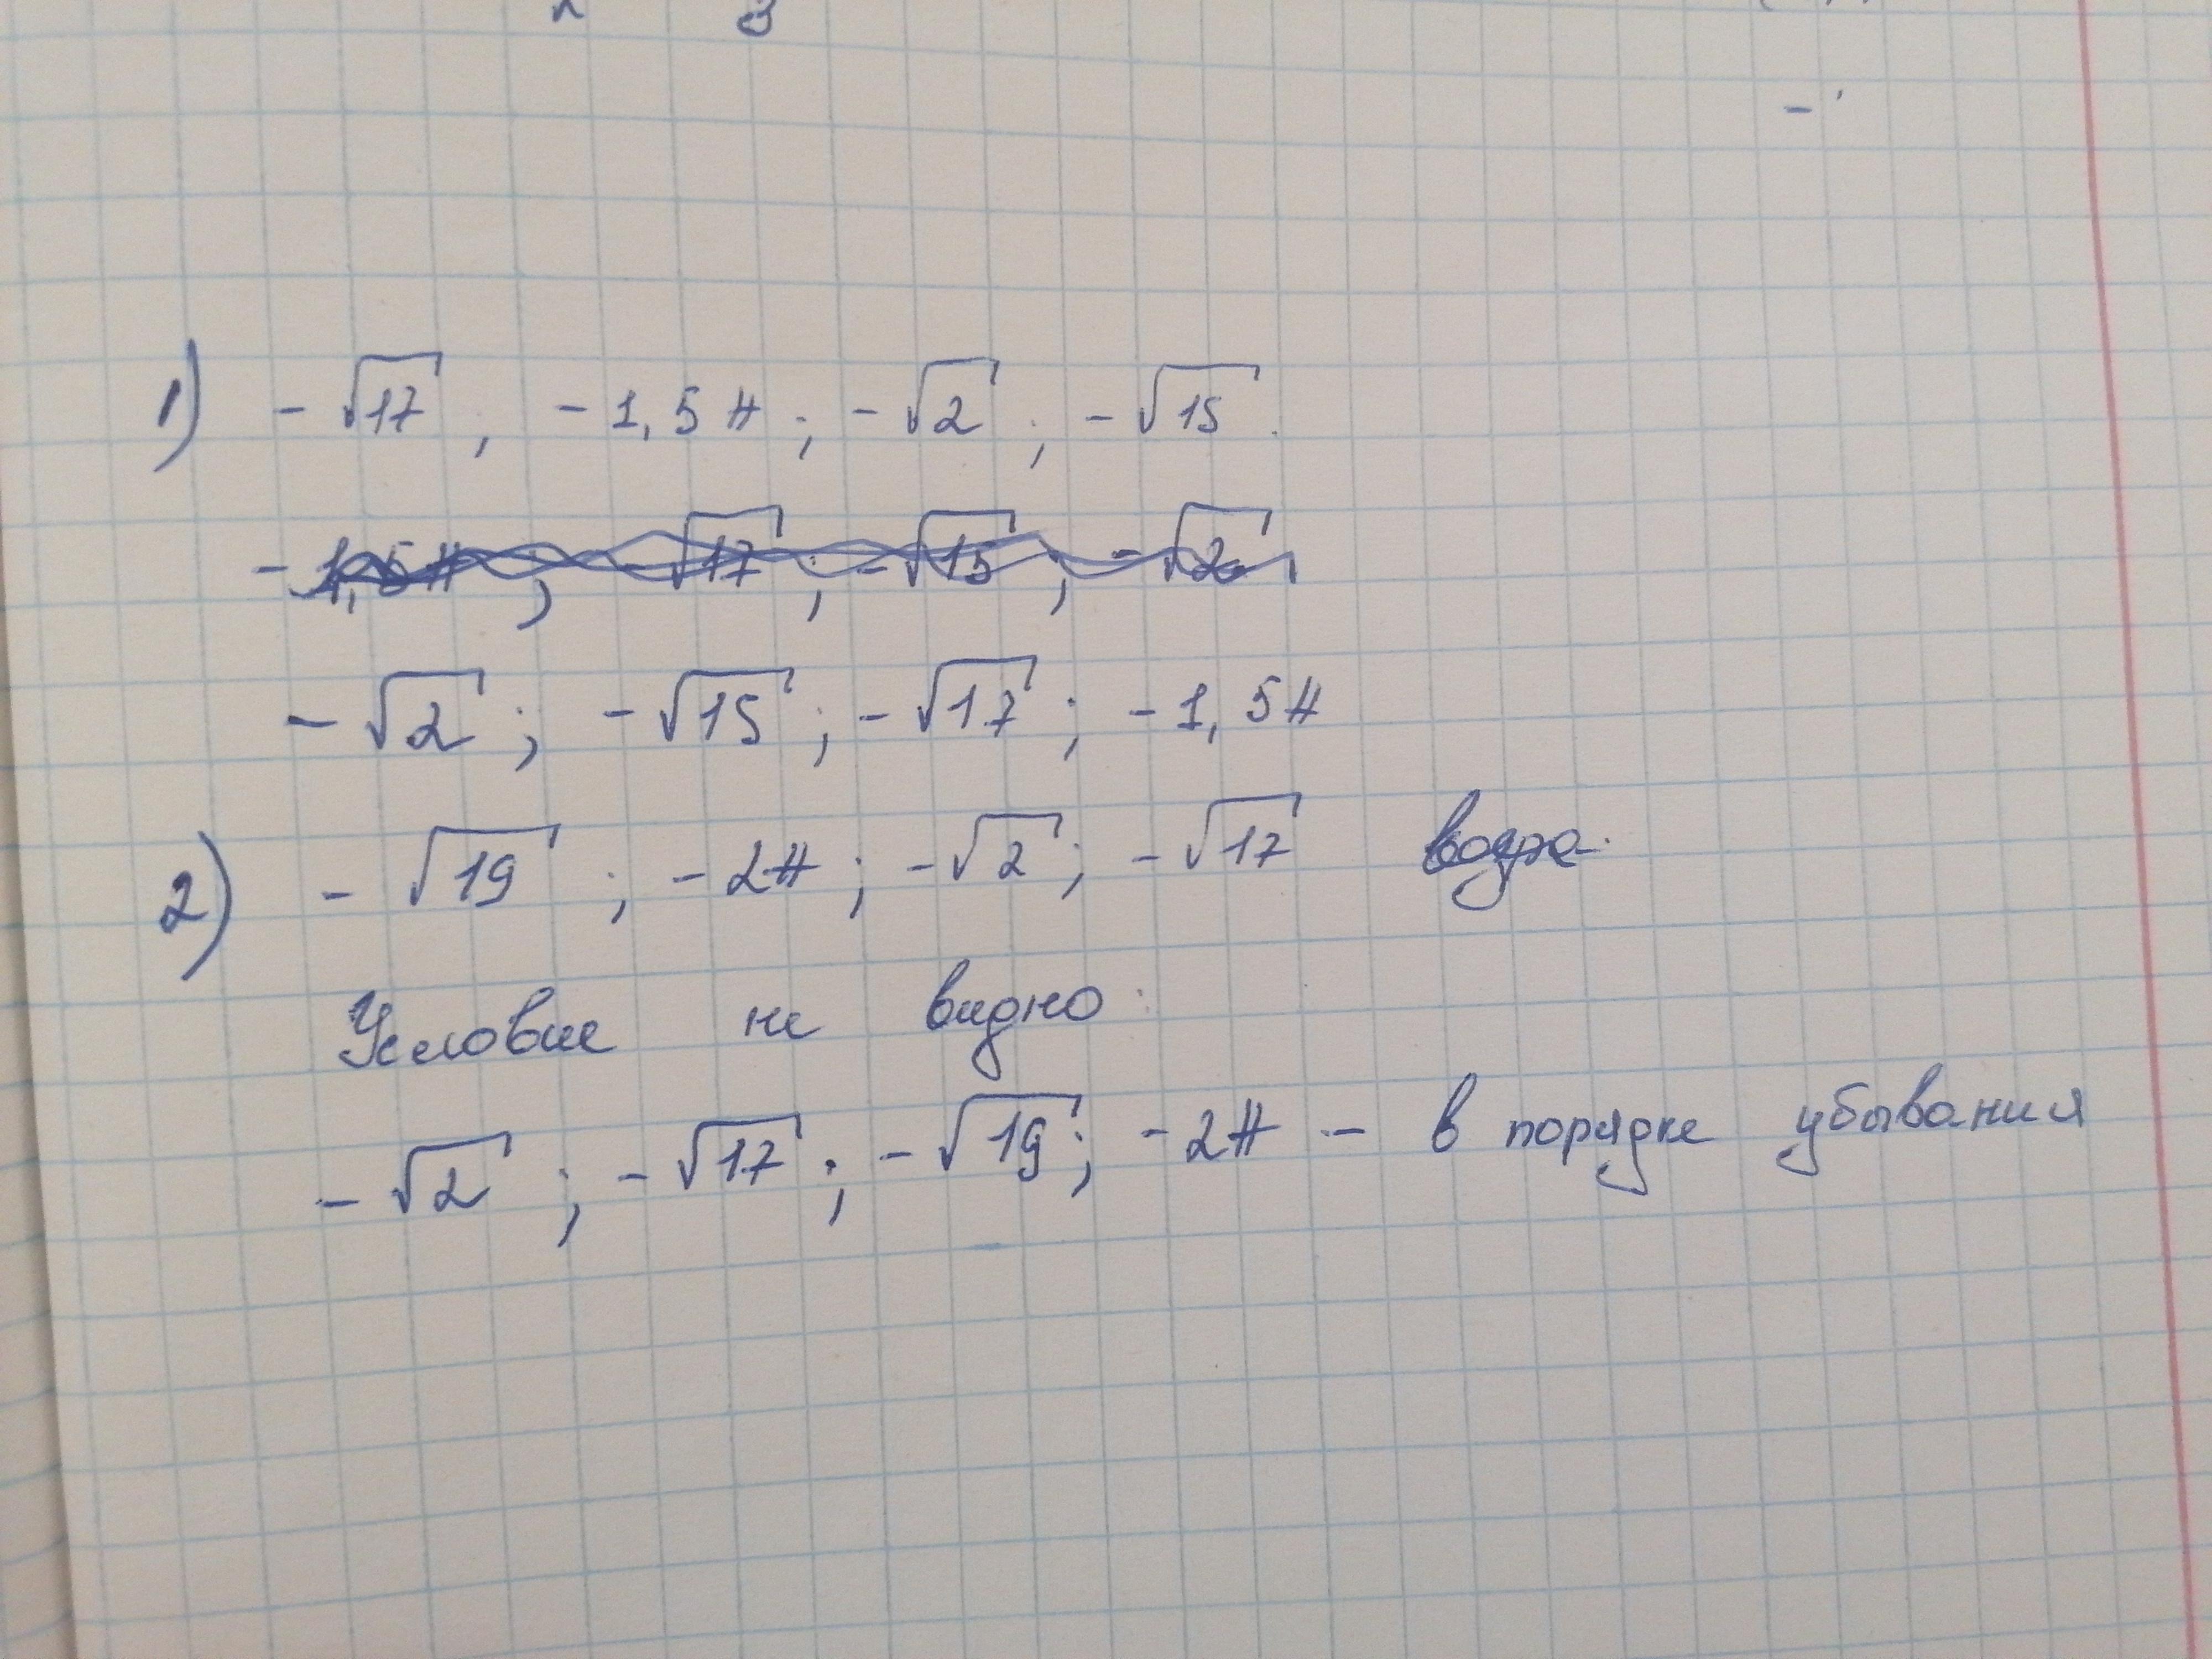 1) - √17 ; - 1,5 π ; - √2 ; - √15.
- 1,5 π ; - √17 ; - √15 ; - √2
- √2 ; - √15 ; - √17 ; - 1,5 π
2) - √19 ; - 2π ; - √2 ; - √17
Условие не видно
- √2 ; - √17 ; - √19 ; - 2π - в порядке убывания